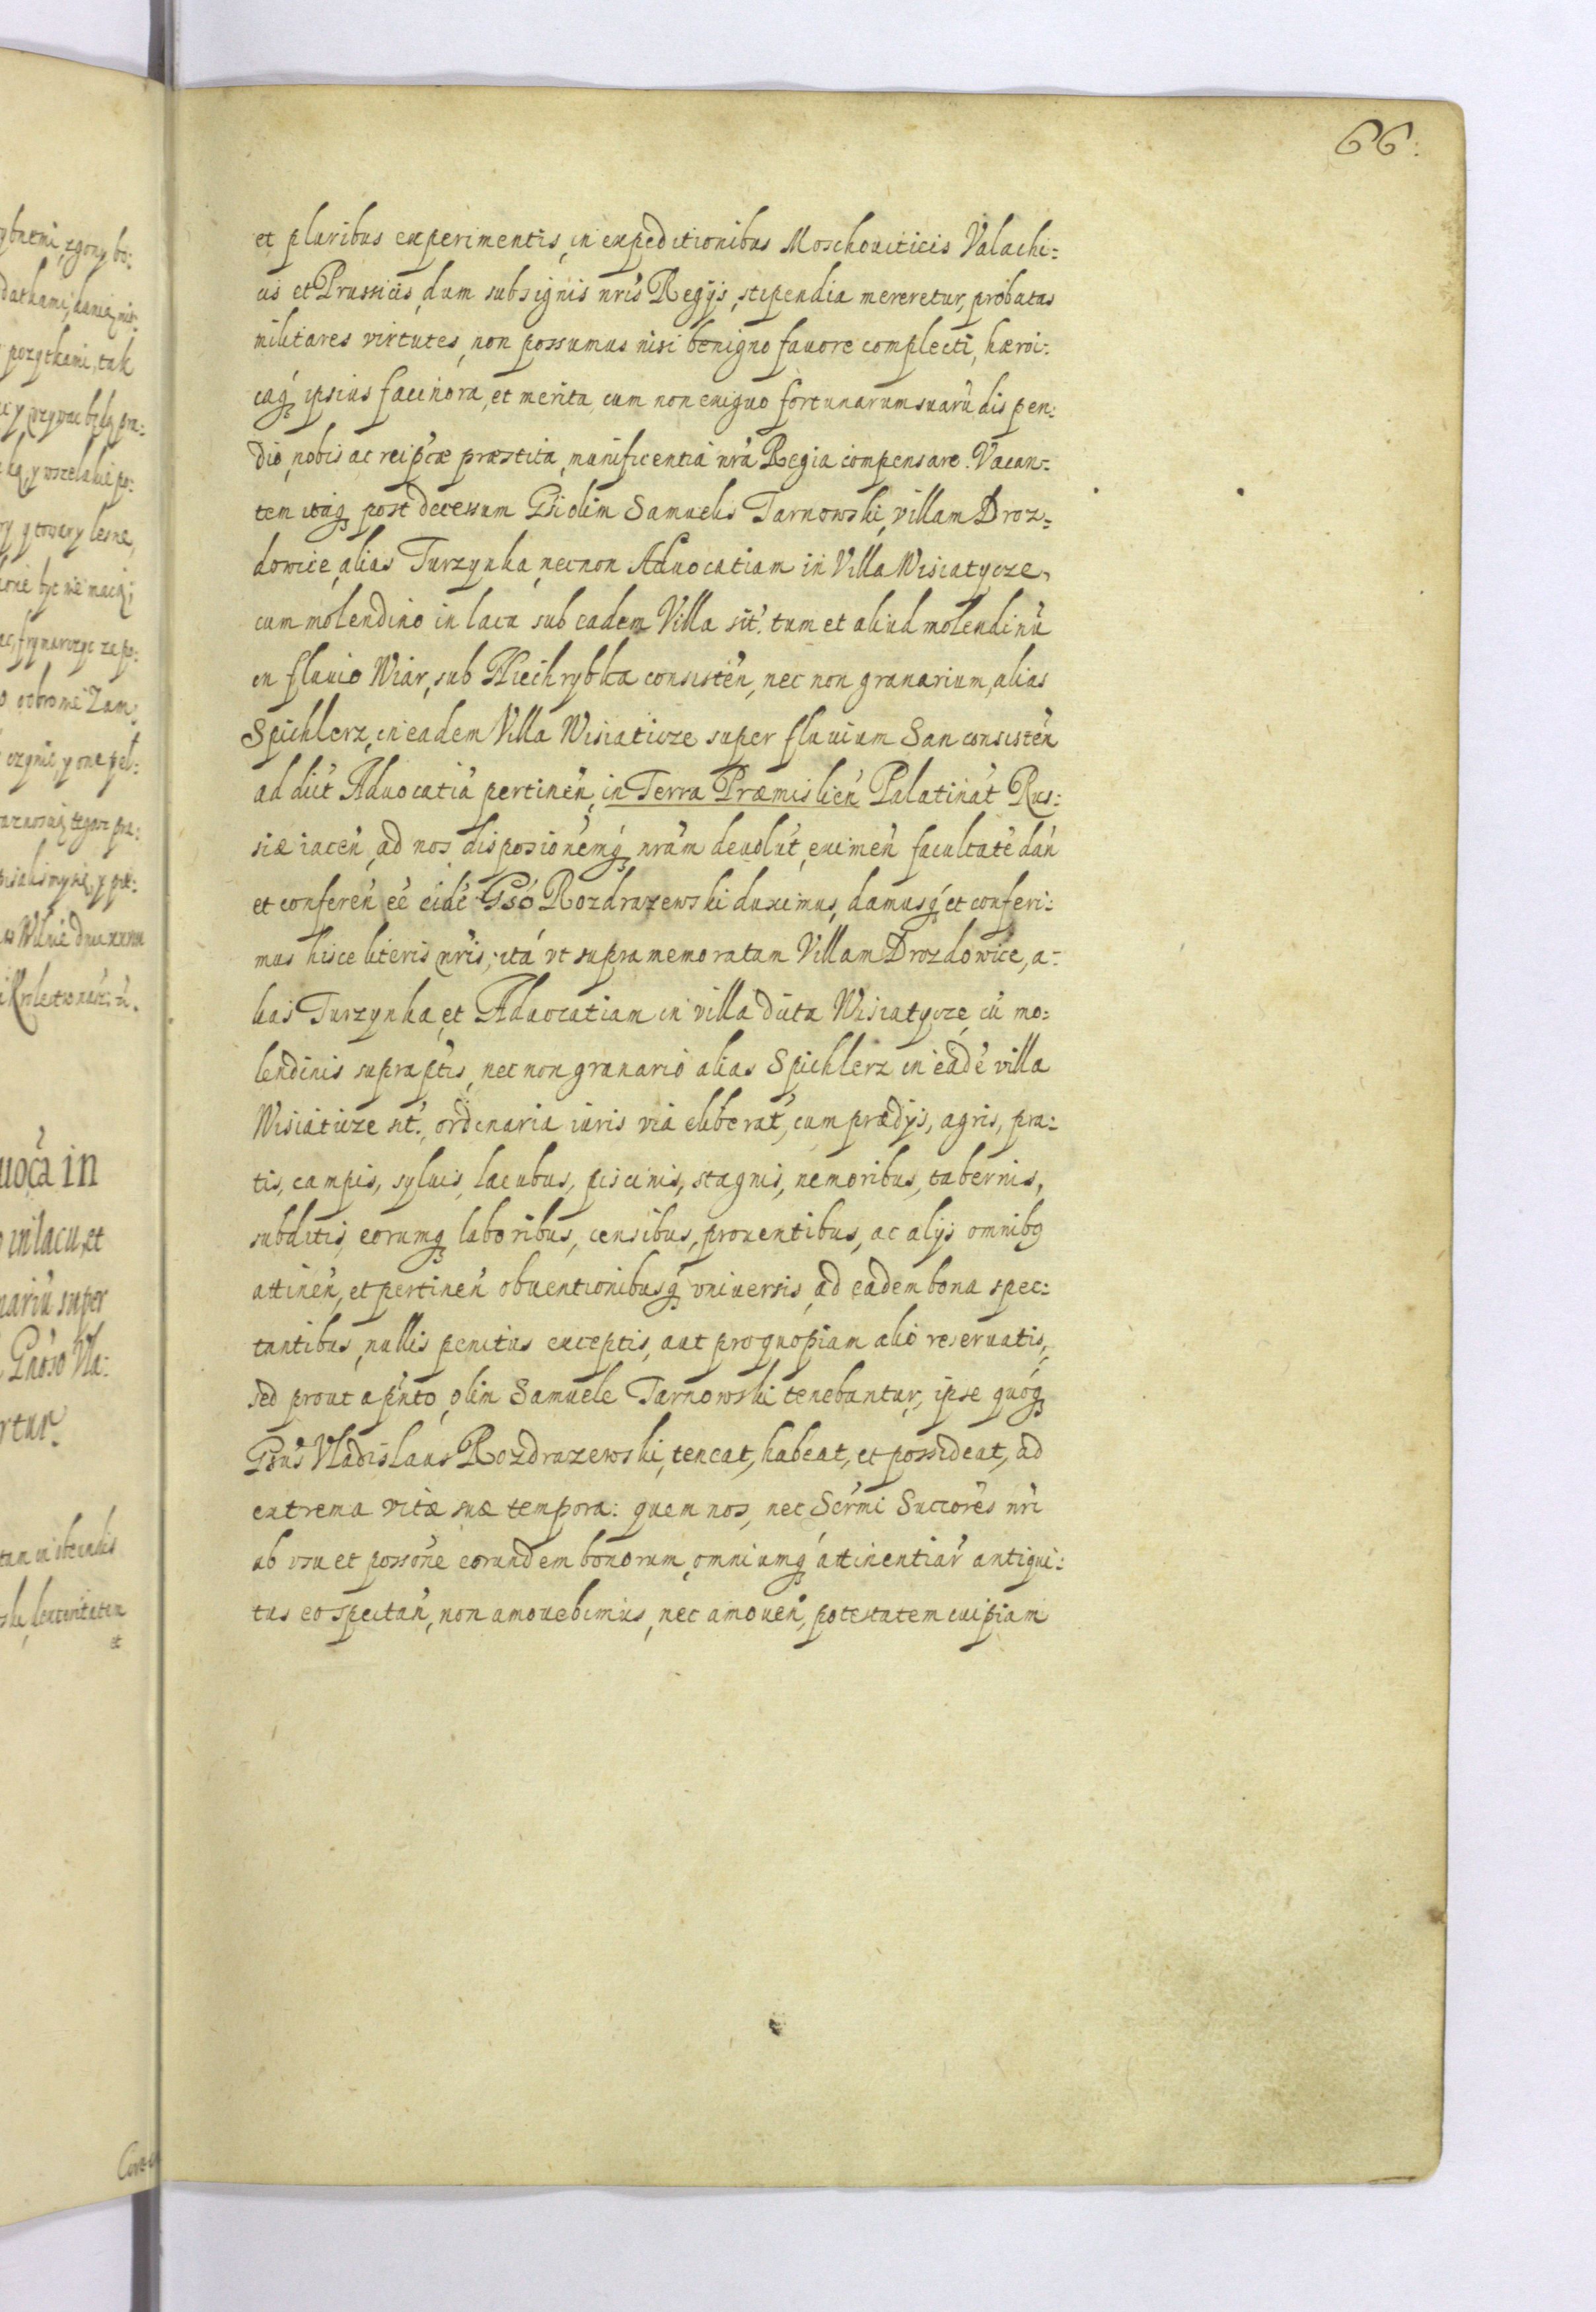 66.
et pluribus experimentis, in expeditionibus Moschouiticis Valachi:
cis et Prussicis, dum sub signis nris Regijs, stipendia mereretur, probatas
militares virtutes, non possumus nisi benigno fauore complecti, hæroi:
caq; ipsius facinora, et merita, cum non exiguo fortunarum suarū dispen:
dio, nobis ac reipcæ præstita, munificentia nrā Regia compensare. Vacan:
tem itaq; post decessum Gsi olim Samuelis Tarnowski, villam Droz:
dowice, alias Turzynka, necnon Aduocatiam in Villa Wisiatycze,
cum molendino in lacu sub eadem Villa sit. tum et aliud molendinū
in fluuio Wiar, sub Hiechrybka consisten, nec non granarium, alias
Spichlerz, in eadem Villa Wisiaticze super fluuium San consisten
ad dict Aduocatiā pertinen, in Terra Præmislien Palatinat Rus:
siæ iacen, ad nos disposionemq; nram deuolut, eximen facultatē dan
et conferen eē eidē Gso Rozdrazewski duximus, damusq; et conferi:
mus hisce literis nris, ita vt supra memoratam Villam Drozdowice, a:
lias Turzynka, et Aduocatiam in villa dicta Wisiatycze, cū mo:
lendinis supraptis, nec non granario alias Spichlerz in eadē villa
Wisiaticze sit. ordinaria iuris via eliberat, cum prædijs, agris, pra:
tis, campis, syluis, lacubus, piscinis, stagnis, nemoribus, tabernis,
subditis, eorumq; laboribus, censibus, prouentibus, ac alijs omnibq
attinen, et pertinen obuentionibusq; vniuersis, ad eadem bona spec:
tantibus, nullis penitus exceptis, aut pro quopiam alio reseruatis,
sed prout a pnto, olim Samuele Tarnowski tenebantur, ipse quoq;
Gsus Vladislaus Rozdrazewski, teneat, habeat, et possideat, ad
extrema vitæ suæ tempora: quem nos, nec Sermi Succores nri
ab vsu et possone eorundem bonorum, omniumq; attinentiar antiqui:
tus eo spectan, non amouebimus, nec amouen, potestatem cuipiam